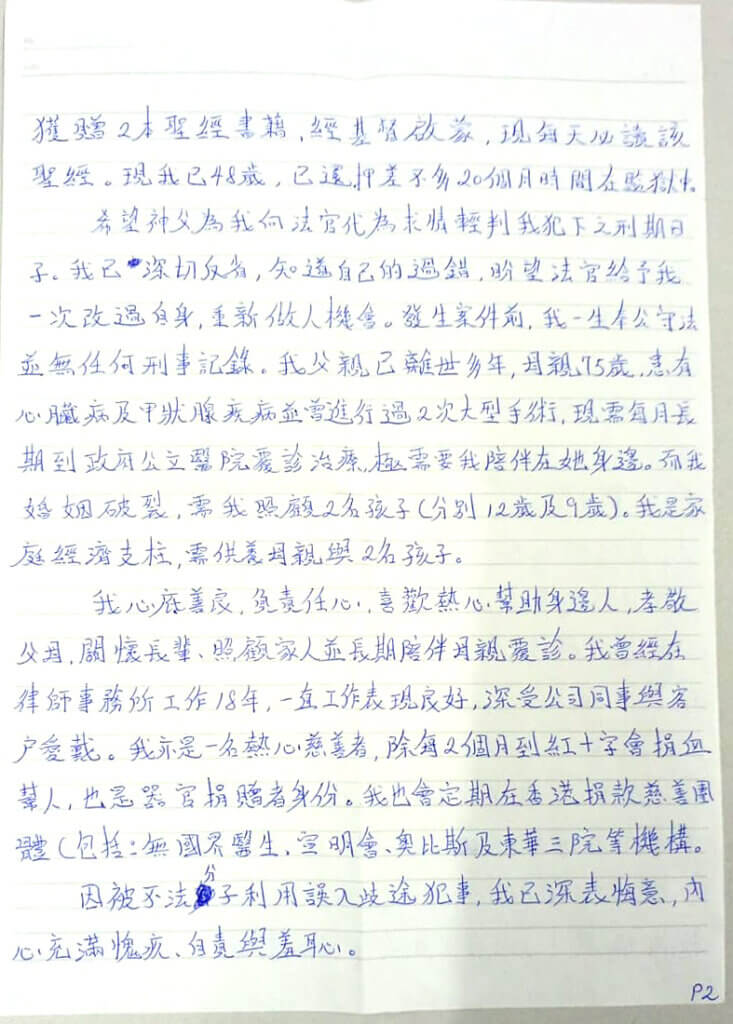 獲贈2本聖經書籍，經基督啟蒙，現每天必讀該
聖經。現我已48歲，已還押差不多20個月時間在監獄中。
希望神父為我向法官代為求情輕判我犯下之刑期日
子。我已深切反省，知道自己的過錯，盼望法官給予我
一次改過自身，重新做人機會。發生案件前，我一生奉公守法
並無任何刑事記錄。我父親已離世多年，母親75歲，患有
心臟病及甲狀腺疾病並曾進行過2次大型手術，現需每月長
期到政府公立醫院覆診治療，極需要我陪伴在她身邊。而我
婚姻破裂，需我照顧2名孩子（分別12歲及9歲）。我是家
庭經濟支柱，需供養母親與2名孩子。
我心底善良，負責任心，喜歡熱心幫助身邊人，孝敬
父母，關懷長輩、照顧家人並長期陪伴母親覆診。我曾經在
律師事務所工作18年，一直工作表現良好，深受公司同事與客
戶愛戴。我亦是一名熱心慈善者，除每2個月到紅十字會捐血
幫人，也是器官捐贈者身份。我也會定期在香港捐款慈善團
體（包括：無國界醫生、宣明會、奧比斯及東華三院等機構。
因被不法分子利用誤入歧途犯事，我已深表悔意，內
心充滿愧疚、自責與羞恥。
P2